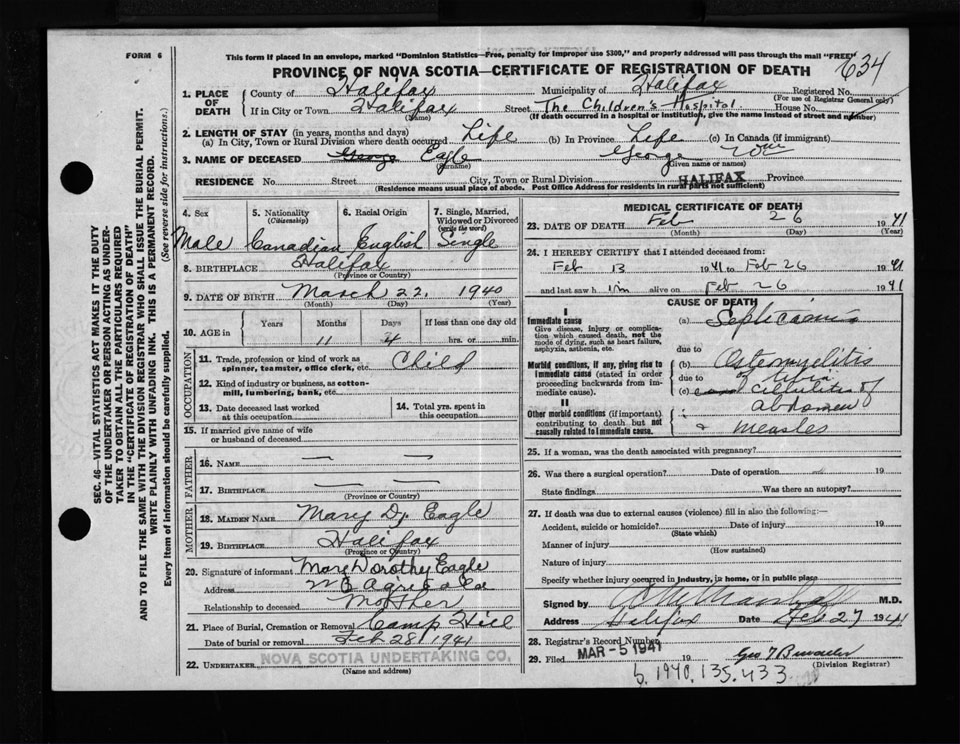 FORM 6
This form if placed in an envelope, marked "Dominion Statistics—Free, penalty for improper use $300," and properly addressed will pass through the mail "FREE"
PROVINCE OF NOVA SCOTIA—CERTIFICATE OF REGISTRATION OF DEATH
634
1. PLACE OF DEATH
County of Halifax Municipality of Halifax Registered No.
(For use of Registrar General only)
If in City or Town Halifax Street The Children's Hospital. House No.
(Name) (If death occurred in a hospital or institution, give the name instead of street and number)
2. LENGTH OF STAY (in years, months and days)
(a) In City, Town or Rural Division where death occurred Life (b) In Province Life (c) In Canada (if immigrant)
3. NAME OF DECEASED George Eagle George Wm
(Surname) (Given name or names)
RESIDENCE No. Street City, Town or Rural Division HALIFAX Province
(Residence means usual place of abode. Post Office Address for residents in rural parts not sufficient)
SEC. 46—VITAL STATISTICS ACT MAKES IT THE DUTY
OF THE UNDERTAKER OR PERSON ACTING AS UNDER-
TAKER TO OBTAIN ALL THE PARTICULARS REQUIRED
IN THE "CERTIFICATE OF REGISTRATION OF DEATH"
AND TO FILE THE SAME WITH THE DIVISION REGISTRAR WHO SHALL ISSUE THE BURIAL PERMIT.
WRITE PLAINLY WITH UNFADING INK. THIS IS A PERMANENT RECORD.
Every item of information should be carefully supplied. (See reverse side for instructions.)
4. Sex
Male
5. Nationality
(Citizenship)
Canadian
6. Racial Origin
English
7. Single, Married, Widowed or Divorced
(write the word)
Single
8. BIRTHPLACE Halifax
(Province or Country)
9. DATE OF BIRTH March 22, 1940
(Month) (Day) (Year)
10. AGE in Years Months Days If less than one day old
11 4 hrs. or min.
OCCUPATION
11. Trade, profession or kind of work as
spinner, teamster, office clerk, etc. Child
12. Kind of industry or business, as cotton-
mill, lumbering, bank, etc.
13. Date deceased last worked
at this occupation
14. Total yrs. spent in
this occupation
15. If married give name of wife
or husband of deceased
FATHER
16. NAME — —
17. BIRTHPLACE — —
(Province or Country)
MOTHER
18. MAIDEN NAME Mary Dy. Eagle
19. BIRTHPLACE Halifax
(Province or Country)
20. Signature of informant Mary Dorothy Eagle
Address
Relationship to deceased Mother
21. Place of Burial, Cremation or Removal Camp Hill
Date of burial or removal Feb 28, 1941
22. UNDERTAKER NOVA SCOTIA UNDERTAKING CO.
(Name and address)
MEDICAL CERTIFICATE OF DEATH
23. DATE OF DEATH Feb 26 1941
(Month) (Day) (Year)
24. I HEREBY CERTIFY that I attended deceased from:
Feb 13 1941 to Feb 26 1941
and last saw him alive on Feb 26 1941
CAUSE OF DEATH
I
Immediate cause
Give disease, injury or complica-
tion which caused death, not the
mode of dying, such as heart failure,
asphyxia, asthenia, etc.
(a) Septicaemia
due to
Morbid conditions, if any, giving rise to
immediate cause (stated in order
proceeding backwards from im-
mediate cause).
(b) Osteomyelitis
due to
(c) Cellulitis of
abdomen
II
Other morbid conditions (if important)
contributing to death but not
causally related to immediate cause.
& measles
25. If a woman, was the death associated with pregnancy?
26. Was there a surgical operation? Date of operation 19
State findings Was there an autopsy?
27. If death was due to external causes (violence) fill in also the following:—
Accident, suicide or homicide? Date of injury 19
(State which)
Manner of injury
(How sustained)
Nature of injury
Specify whether injury occurred in industry, in home, or in public place
Signed by M.D.
Address Halifax Date Feb 27 1941
28. Registrar's Record Number
29. Filed MAR - 5 1941 19
(Division Registrar)
b. 1940, 135, 433